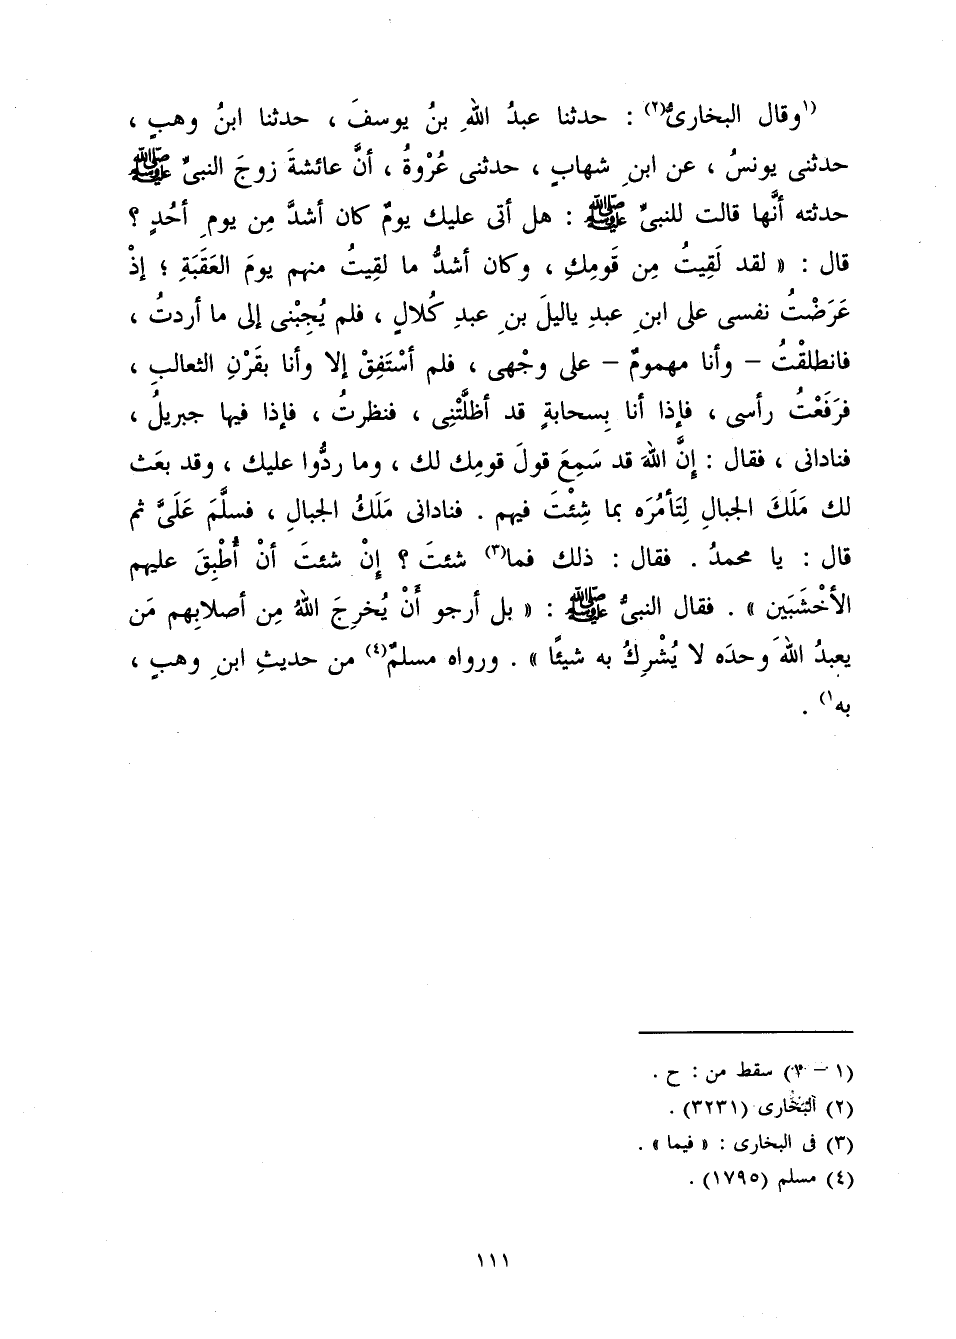 (١وقال البخارىُّ(٢) : حدثنا عبدُ اللهِ بنُ يوسفَ ، حدثنا ابنُ وهبٍ ،
حدثنى يونسُ ، عن ابنِ شهابٍ ، حدثنى عُرْوةُ ، أنَّ عائشةَ زوجَ النبىِّ ﷺ
حدثته أنَّها قالت للنبىِّ ﷺ : هل أتى عليك يومٌ كان أشدَّ مِن يومِ أحُدٍ ؟
قال : « لقد لَقِيتُ مِن قَومِكِ ، وكان أشدُّ ما لقِيتُ منهم يومَ العَقَبَةِ ؛ إذْ
عَرَضْتُ نفسى على ابنِ عبدِ ياليلَ بنِ عبدِ كُلالٍ ، فلم يُجِبْنى إلى ما أردتُ ،
فانطلقْتُ – وأنا مهمومٌ – على وجْهى ، فلم أسْتَفِقْ إلا وأنا بقَرْنِ الثعالبِ ،
فرَفَعْتُ رأسى ، فإذا أنا بِسحابةٍ قد أظلَّتْنِى ، فنظرتُ ، فإذا فيها جبريلُ ،
فنادانى ، فقال : إنَّ اللهَ قد سَمِعَ قولَ قومِك لك ، وما ردُّوا عليك ، وقد بعَث
لك مَلَكَ الجبالِ لِتَأمُرَه بما شِئْتَ فيهم . فنادانى مَلَكُ الجبالِ ، فسلَّمَ عَلَىَّ ثم
قال : يا محمدُ . فقال : ذلك فما(٣) شئتَ ؟ إنْ شئتَ أنْ أُطْبِقَ عليهم
الأخْشَبَين » . فقال النبىُّ ﷺ : « بل أرجو أَنْ يُخرِجَ اللهُ مِن أصلابِهم مَن
يعبدُ اللهَ وحدَه لا يُشْرِكُ به شيئًا » . ورواه مسلمٌ(٤) من حديثِ ابنِ وهبٍ ،
به١) .
(١ – ١) سقط من : ح .
(٢) البخارى (٣٢٣١) .
(٣) فى البخارى : « فيما » .
(٤) مسلم (١٧٩٥) .
١١١